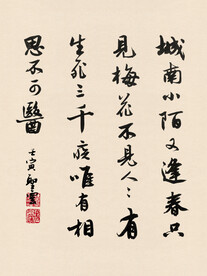 城南小陌又逢春只
見梅花不見人〻有
生死三千疾唯有相
思不可醫
壬寅聖雲